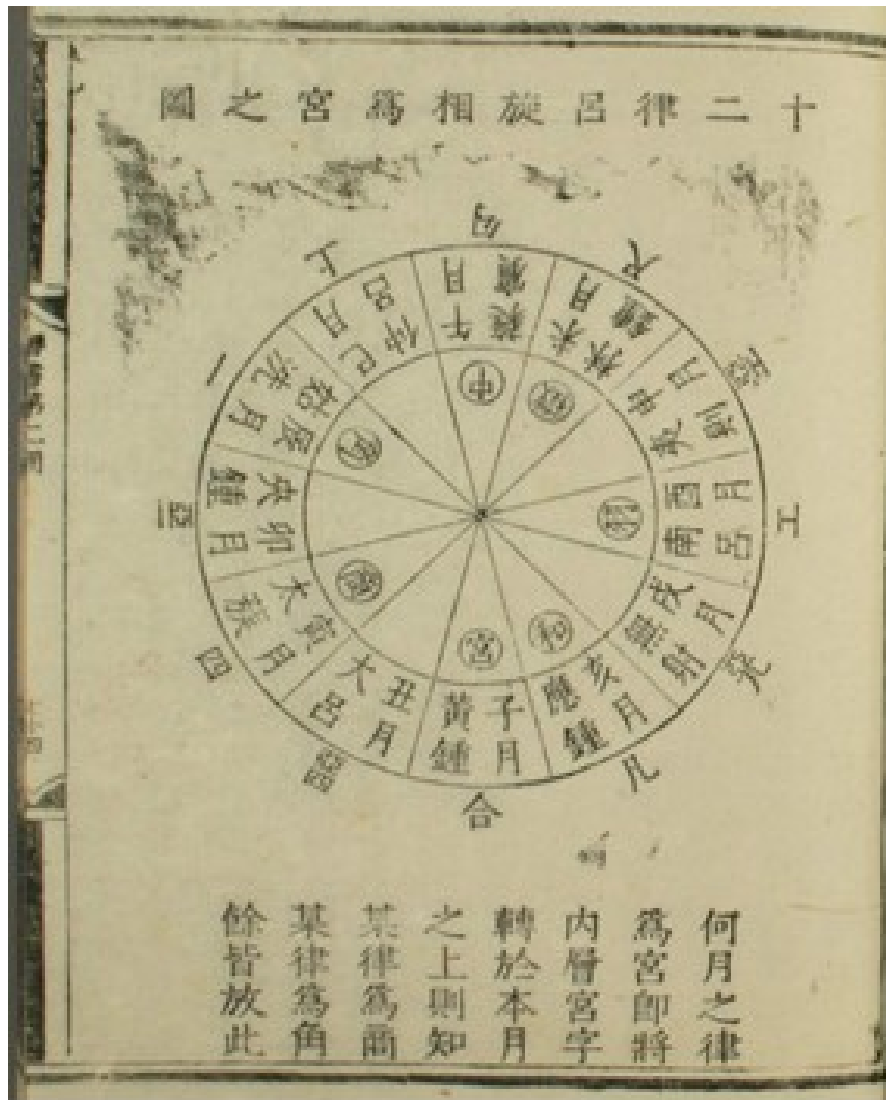 十二律呂旋相爲宮之圖
合
子月
黃鍾
宮
丑月
大呂
四
寅月
太簇
卯月
夾鍾
一
辰月
姑洗
角
上
巳月
仲呂
勾
午月
蕤賓
中
尺
未月
林鍾
徵
申月
夷則
工
酉月
南呂
羽
戌月
無射
凡
亥月
應鍾
和
何月之律
爲宮即將
内層宮字
轉於本月
之上則知
某律爲商
某律爲角
餘皆放此